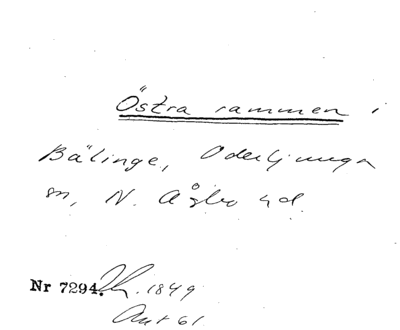 Östra rammen i
Bälinge, Oderljunga
sn, N. Åsbo hd.
Nr 7294. 1849